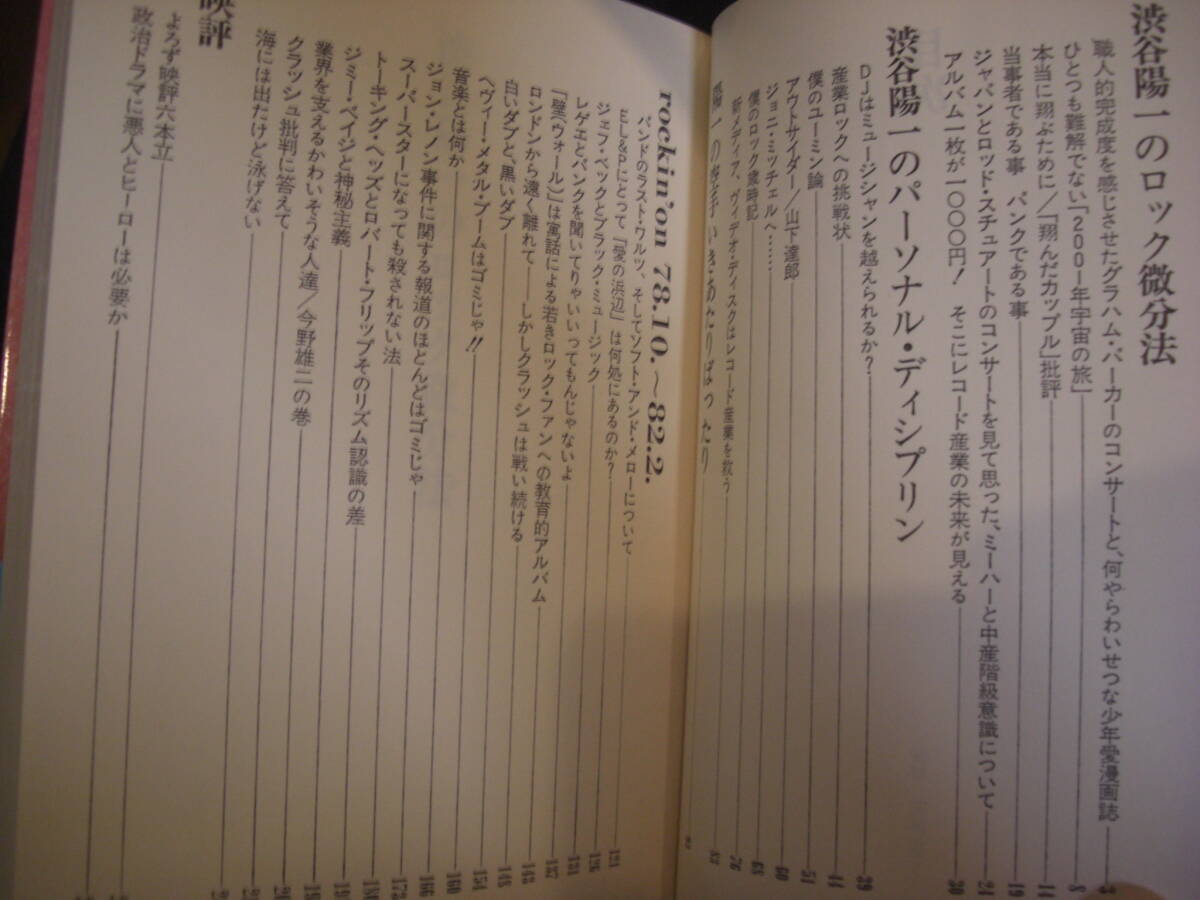 渋谷陽一のロック微分法
職人的完成度を感じさせたグラハム・パーカーのコンサートと、何やらわいせつな少年愛漫画誌 3
ひとつも難解でない「2001年宇宙の旅」 8
本当に翔ぶために/「翔んだカップル」批評 14
当事者である事 パンクである事 19
ジャパンとロッド・スチュアートのコンサートを見て思った、ミーハーと中産階級意識について 24
アルバム一枚が一〇〇〇円! そこにレコード産業の未来が見える 30
渋谷陽一のパーソナル・ディシプリン
DJはミュージシャンを越えられるか? 39
産業ロックへの挑戦状 44
僕のユーミン論 51
アウトサイダー/山下達郎 60
ジョニ・ミッチェルへ…… 68
僕のロック歳時記 76
新メディア、ヴィデオ・ディスクはレコード産業を救う 83
いきあたりばったり
rockin'on 78.10.〜82.2.
バンドのラスト・ワルツ、そしてソフト・アンド・メローについて 121
EL&Pにとって『愛の浜辺』は何処にあるのか? 126
ジェフ・ベックとブラック・ミュージック 131
レゲエとパンクを聞いてりゃいいってもんじゃないよ 137
「壁(ヴォール)」は寓話による若きロック・ファンへの教育的アルバム 143
ロンドンから遠く離れて——しかしクラッシュは戦い続ける 148
白いダブと、黒いダブ 154
ヘヴィー・メタル・ブームはゴミじゃ!! 160
音楽とは何か 166
ジョン・レノン事件に関する報道のほとんどはゴミじゃ
スーパースターになっても殺されない法
トーキング・ヘッズとロバート・フリップそのリズム認識の差
ジミー・ペイジと神秘主義
業界を支えるかわいそうな人達/今野雄二の巻
クラッシュ批判に答えて
海には出たけど泳げない
映評
よろず映評六本立
政治ドラマに悪人とヒーローは必要か